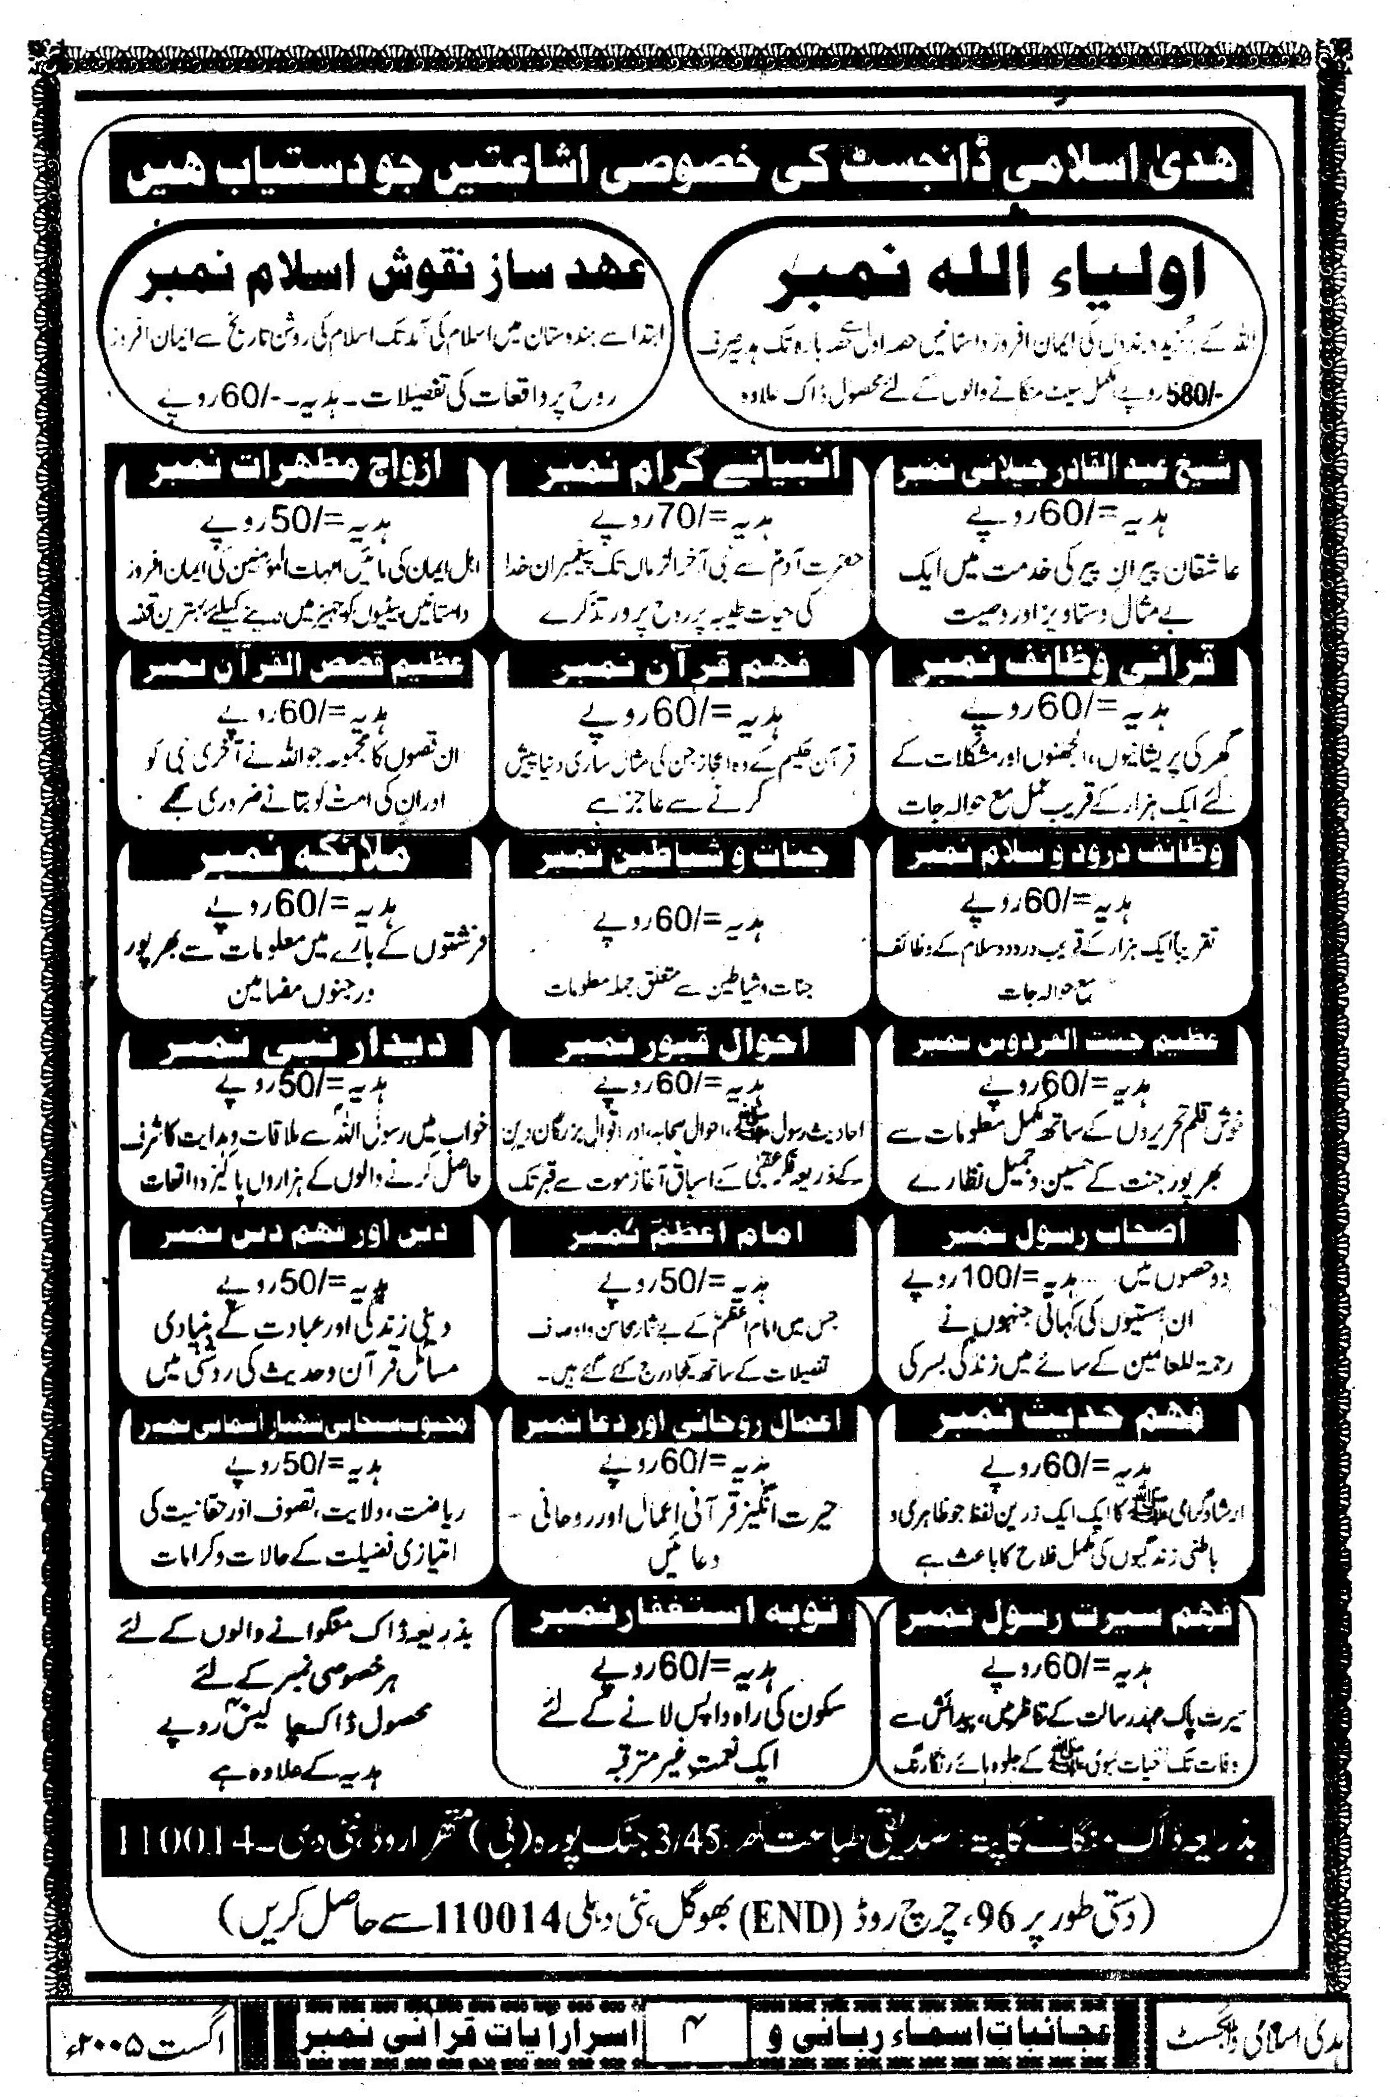 ھدیٰ اسلامی ڈائجسٹ کی خصوصی اشاعتیں جو دستیاب ھیں
اولیاء اللہ نمبر
اللہ کے برگزیدہ بندوں کی ایمان افروز داستانیں حصہ اول تا حصہ بارہ تک ہدیہ صرف
580/- روپے مکمل سیٹ منگانے والوں کے لئے محصول ڈاک علاوہ
عھد ساز نقوش اسلام نمبر
ابتدا سے ہندوستان میں اسلام کی آمد تک اسلام کی روشن تاریخ سے ایمان افروز
روح پر واقعات کی تفصیلات۔ ہدیہ۔ 60/- روپے
شیخ عبد القادر جیلانی نمبر
ہدیہ =/60 روپے
عاشقان پیران پیر کی خدمت میں ایک
بے مثال دستاویز اور وصیت
انبیائے کرام نمبر
ہدیہ =/70 روپے
حضرت آدم سے نبی آخر الزماں تک پیغمبران خدا
کی حیات طیبہ پر روح پرور تذکرے
ازواج مطھرات نمبر
ہدیہ =/50 روپے
اہل ایمان کی مائیں امہات المؤمنین کی ایمان افروز
داستانیں بیٹیوں کو جہیز میں دینے کیلئے بہترین تحفہ
قرآنی وظائف نمبر
ہدیہ =/60 روپے
گھر کی پریشانیوں، الجھنوں اور مشکلات کے
لئے ایک ہزار کے قریب عمل مع حوالہ جات
فھم قرآن نمبر
ہدیہ =/60 روپے
قرآن حکیم کے وہ اعجاز جن کی مثال ساری دنیا پیش
کرنے سے عاجز ہے
عظیم قصص القرآن نمبر
ہدیہ =/60 روپے
ان قصوں کا مجموعہ جو اللہ نے آخری نبی کو
اور ان کی امت کو بتانے ضروری سمجھے
وظائف درود و سلام نمبر
ہدیہ =/60 روپے
تقریباً ایک ہزار کے قریب درود و سلام کے وظائف
مع حوالہ جات
جنات و شیاطین نمبر
ہدیہ =/60 روپے
جنات و شیاطین سے متعلق جملہ معلومات
ملائکہ نمبر
ہدیہ =/60 روپے
فرشتوں کے بارے میں معلومات سے بھرپور
درجنوں مضامین
عظیم جنت الفردوس نمبر
ہدیہ =/60 روپے
خوش قلم تحریروں کے ساتھ مکمل معلومات سے
بھرپور جنت کے حسین و جمیل نظارے
احوال قبور نمبر
ہدیہ =/60 روپے
احادیث رسول ﷺ، احوال صحابہ، اور اقوال بزرگان دین
کے ذریعہ فکر عقبیٰ کے اسباق آغاز موت سے قبر تک
دیدار نبی نمبر
ہدیہ =/50 روپے
خواب میں رسول اللہ سے ملاقات و ہدایت کا شرف
حاصل کرنے والوں کے ہزاروں پاکیزہ واقعات
اصحاب رسول نمبر
دو حصوں میں .... ہدیہ =/100 روپے
ان ہستیوں کی کہانی جنہوں نے
رحمۃ للعالمین کے سائے میں زندگی بسر کی
امام اعظم نمبر
ہدیہ =/50 روپے
جس میں امام اعظم کے بے شمار محاسن و اوصاف
تفصیلات کے ساتھ یکجا درج کئے گئے ہیں۔
دین اور فھم دین نمبر
ہدیہ =/50 روپے
دینی زندگی اور عبادت کے بنیادی
مسائل قرآن و حدیث کی روشنی میں
فھم حدیث نمبر
ہدیہ =/60 روپے
ارشاد گرامی ﷺ کا ایک ایک زرین لفظ جو ظاہری و
باطنی زندگیوں کی مکمل فلاح کا باعث ہے
اعمال روحانی اور دعا نمبر
ہدیہ =/60 روپے
حیرت انگیز قرآنی اعمال اور روحانی
دعائیں
محبوب سبحانی شھباز آسمانی نمبر
ہدیہ =/50 روپے
ریاضت، ولایت، تصوف اور حقانیت کی
امتیازی فضیلت کے حالات و کرامات
فھم سیرت رسول نمبر
ہدیہ =/60 روپے
سیرت پاک عہد رسالت کے تناظر میں، پیدائش سے
وفات تک حیات نبوی ﷺ کے جلوہ ہائے رنگارنگ
توبہ استغفار نمبر
ہدیہ =/60 روپے
سکون کی راہ واپس لانے کے لئے
ایک نعمت غیر مترقبہ
بذریعہ ڈاک منگوانے والوں کے لئے
ہر خصوصی نمبر کے لئے
محصول ڈاک چالیس روپے
ہدیہ کے علاوہ ہے
بذریعہ ڈاک منگانے کا پتہ: صدیقی طباعت گھر 3/45 جنگ پورہ (بی) متھرا روڈ، نئی دہلی۔ 110014
(دستی طور پر 96، چرچ روڈ (END) بھوگل، نئی دہلی 110014 سے حاصل کریں)
ہدیٰ اسلامی ڈائجسٹ
عجائبات اسماء ربانی و
۴
اسرار آیات قرآنی نمبر
اگست ۲۰۰۵ء